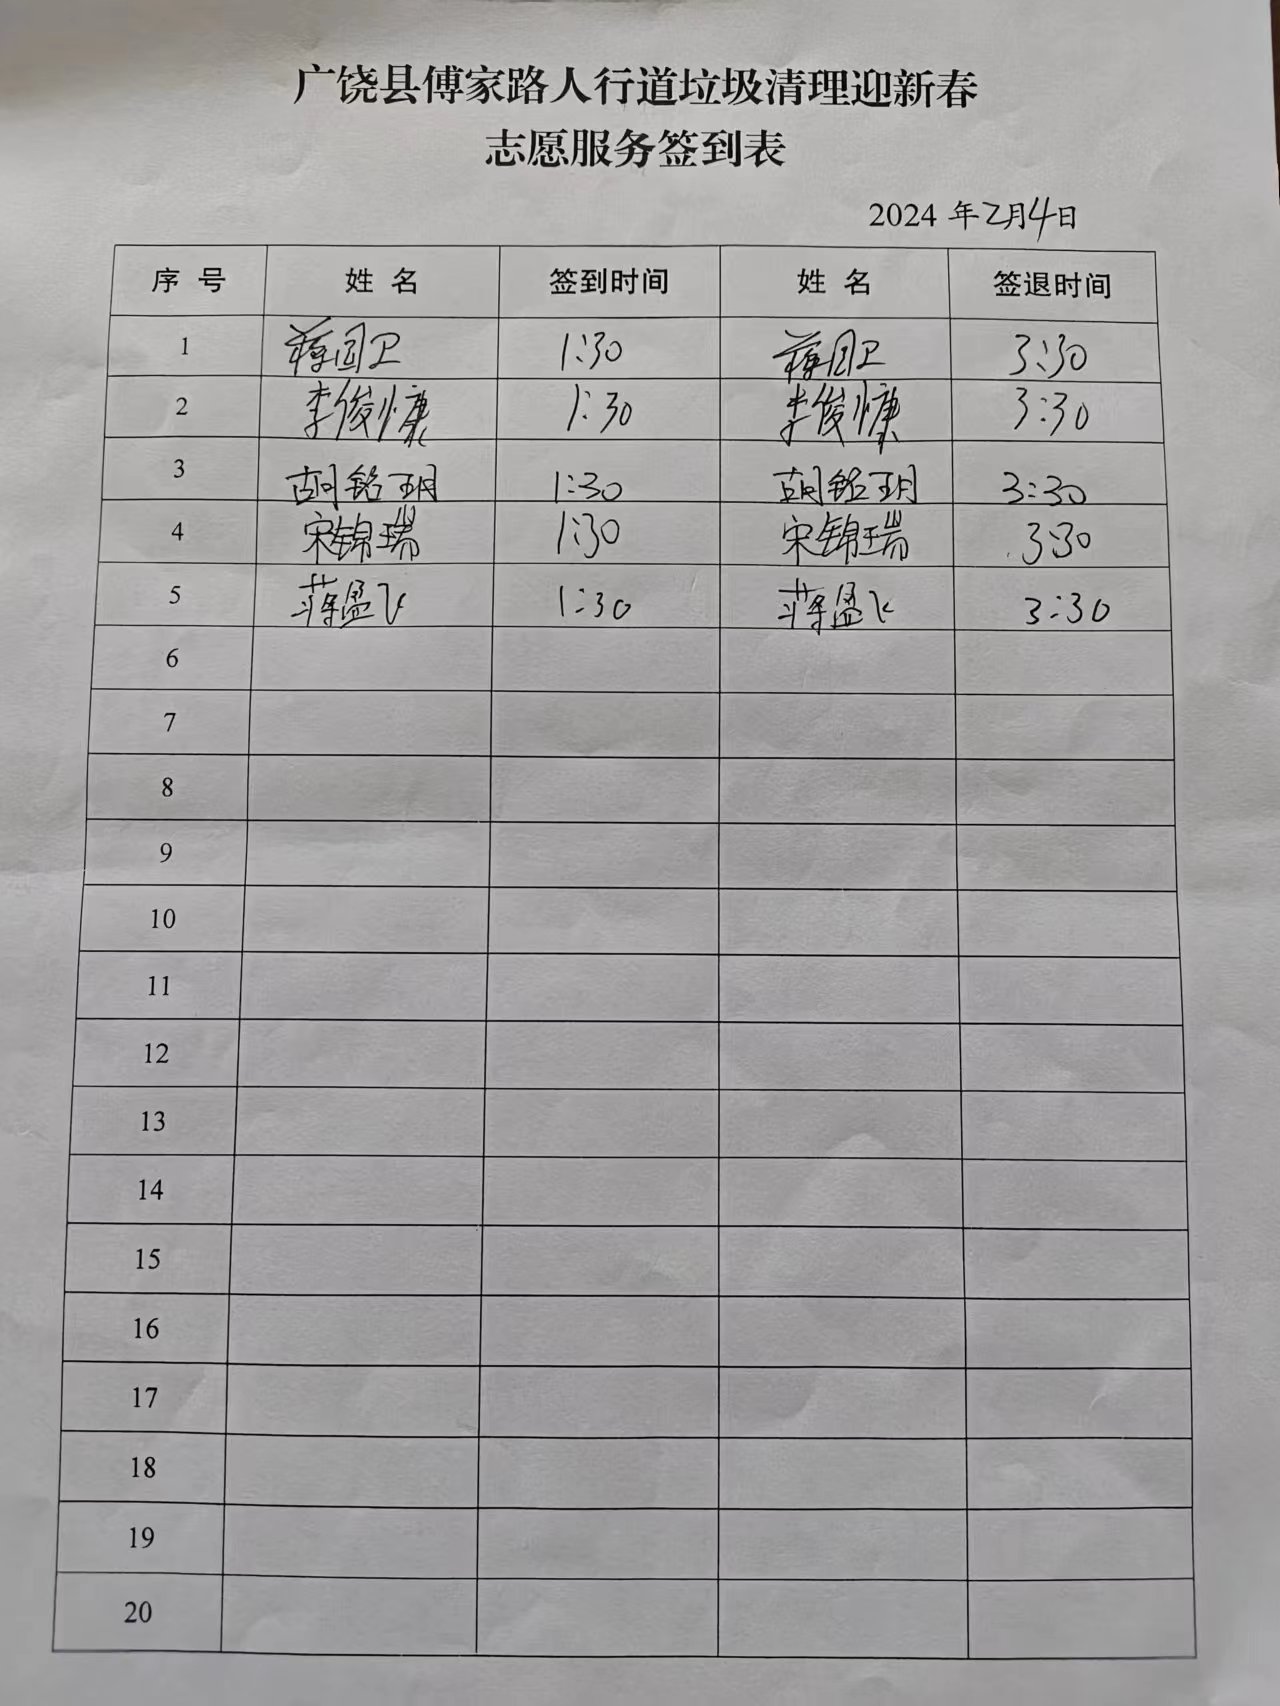 广饶县傅家路人行道垃圾清理迎新春
志愿服务签到表
2024 年2月4日
序 号 姓 名 签到时间 姓 名 签退时间
1 蒋国卫 1:30 蒋国卫 3:30
2 李俊慷 1:30 李俊慷 3:30
3 胡铭玥 1:30 胡铭玥 3:30
4 宋锦瑞 1:30 宋锦瑞 3:30
5 蒋盈飞 1:30 蒋盈飞 3:30
6
7
8
9
10
11
12
13
14
15
16
17
18
19
20